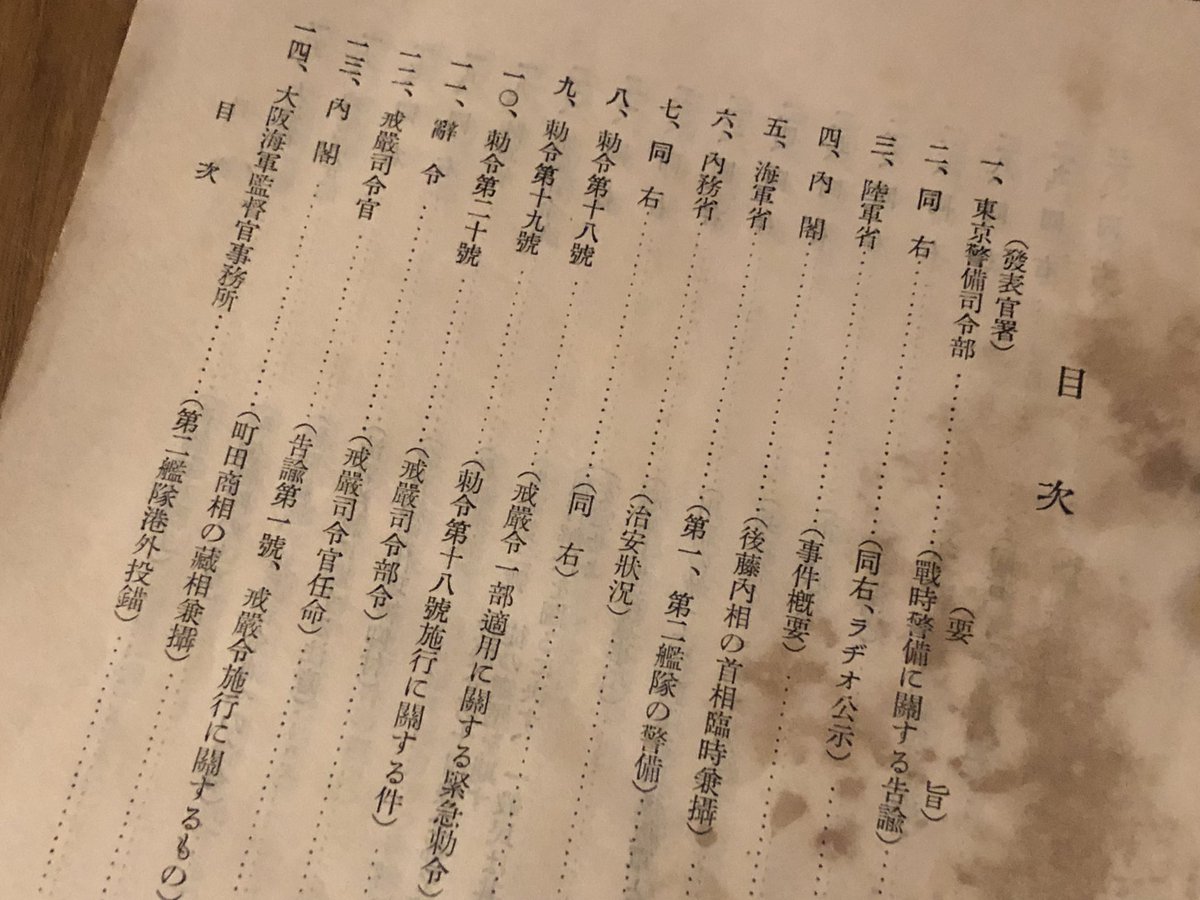 目次
(發表官署) (要旨)
一、東京警備司令部………(戰時警備に關する告諭)………
二、同右………(同右、ラヂオ公示)………
三、陸軍省………(事件概要)………
四、內閣………(後藤內相の首相臨時兼攝)………
五、海軍省………(第一、第二艦隊の警備)………
六、內務省………(治安狀況)………
七、同右………(同右)………
八、勅令第十八號………(戒嚴令一部適用に關する緊急勅令)………
九、勅令第十九號………(勅令第十八號施行に關する件)………
一〇、勅令第二十號………(戒嚴司令部令)………
一一、辭令………(戒嚴司令官任命)………
一二、戒嚴司令官………(告諭第一號、戒嚴令施行に關するもの)
一三、內閣………(町田商相の藏相兼攝)………
一四、大阪海軍監督官事務所………(第二艦隊港外投錨)………
目次